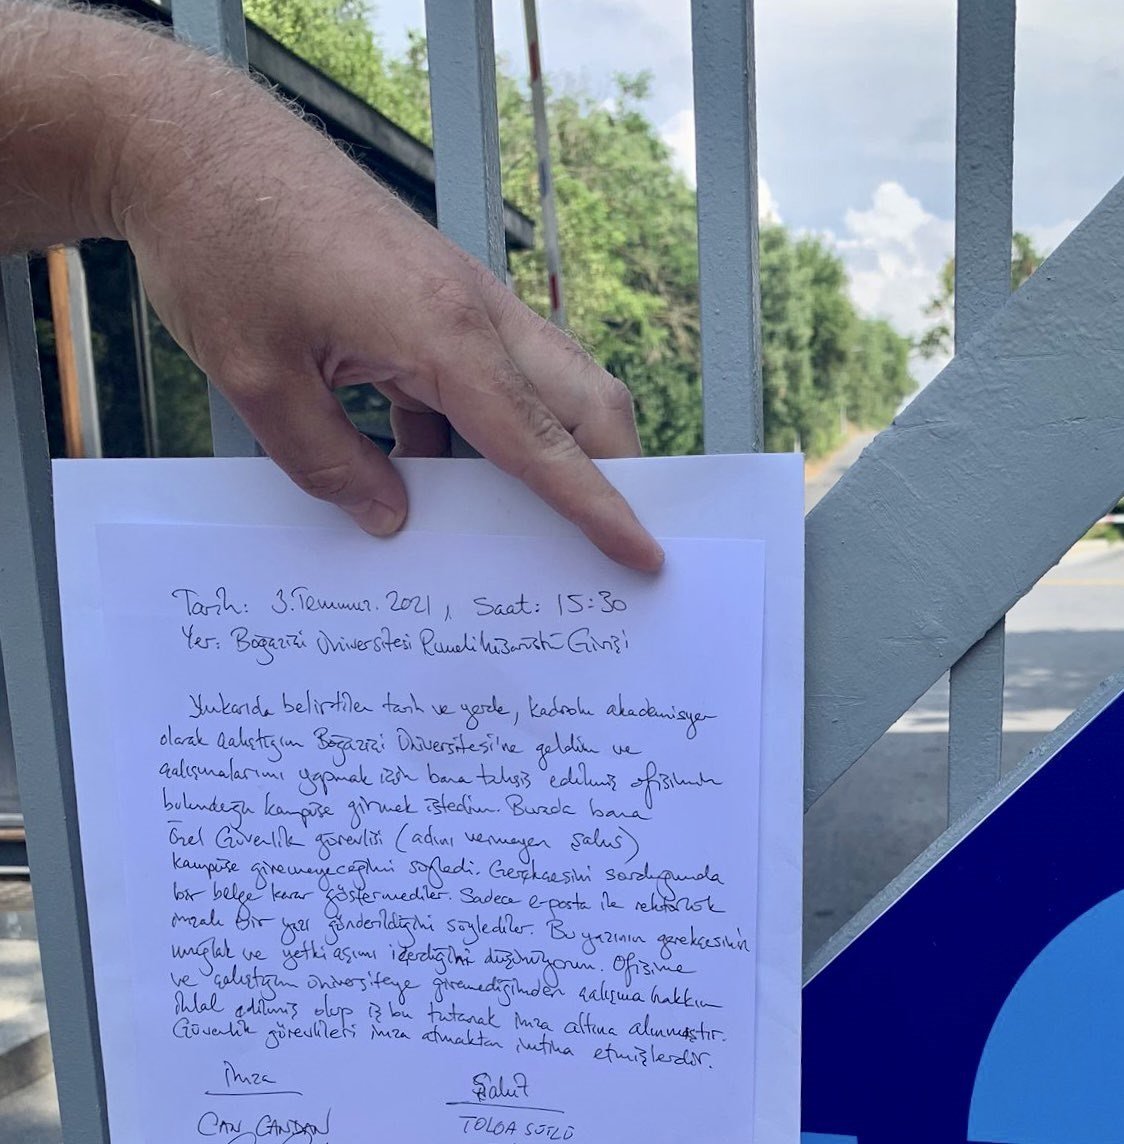 Tarih: 3.Temmuz.2021, Saat: 15:30
Yer: Boğaziçi Üniversitesi Rumelihisarüstü Girişi
Yukarıda belirtilen tarih ve yerde, kadrolu akademisyen
olarak çalıştığım Boğaziçi Üniversitesi'ne geldim ve
çalışmalarımı yapmak için bana tahsis edilmiş ofisimin
bulunduğu kampüse girmek istedim. Burada bana
Özel Güvenlik görevlisi (adını vermeyen şahıs)
kampüse giremeyeceğimi söyledi. Gerekçesini sorduğumda
bir belge karar göstermediler. Sadece e-posta ile rektörlük
imzalı bir yazı gönderildiğini söylediler. Bu yazının gerekçesinin
muğlak ve yetki aşımı içerdiğini düşünüyorum. Ofisime
ve çalıştığım üniversiteye giremediğimden çalışma hakkım
ihlal edilmiş olup iş bu tutanak imza altına alınmıştır.
Güvenlik görevlileri imza atmaktan imtina etmişlerdir.
İmza Şahit
CAN CANDAN TOLGA SÜTLÜ